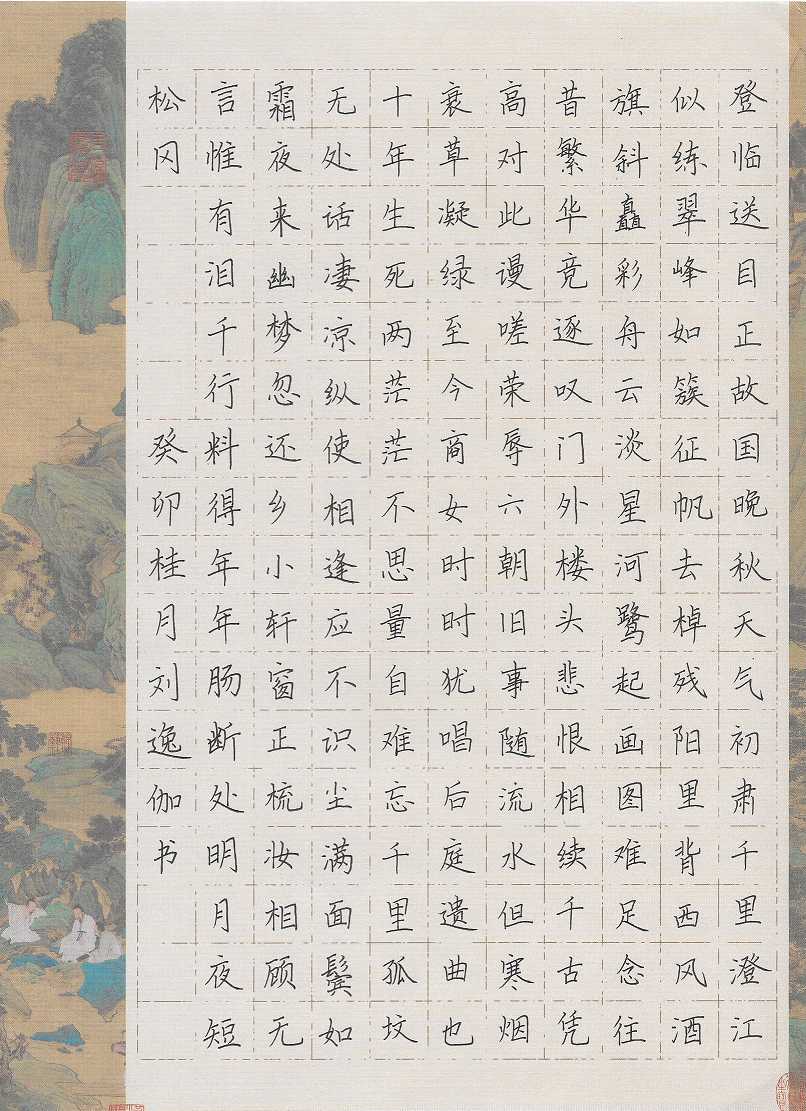 登临送目正故国晚秋天气初肃千里澄江
似练翠峰如簇征帆去棹残阳里背西风酒
旗斜矗彩舟云淡星河鹭起画图难足念往
昔繁华竞逐叹门外楼头悲恨相续千古凭
高对此谩嗟荣辱六朝旧事随流水但寒烟
衰草凝绿至今商女时时犹唱后庭遗曲也
十年生死两茫茫不思量自难忘千里孤坟
无处话凄凉纵使相逢应不识尘满面鬓如
霜夜来幽梦忽还乡小轩窗正梳妆相顾无
言惟有泪千行料得年年肠断处明月夜短
松冈
癸卯桂月刘逸伽书